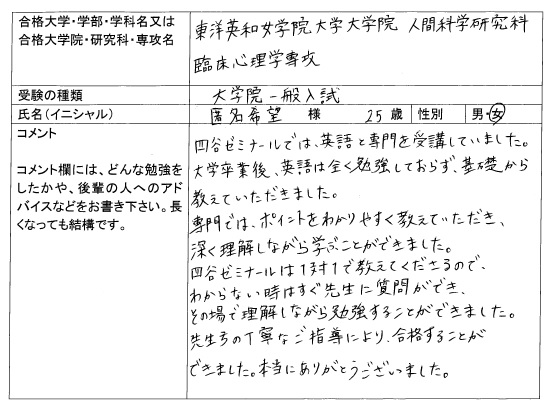 合格大学・学部・学科名又は
合格大学院・研究科・専攻名
東洋英和女学院大学大学院 人間科学研究科
臨床心理学専攻
受験の種類
大学院一般入試
氏名(イニシャル)
匿名希望 様 25歳 性別 男・女
コメント
コメント欄には、どんな勉強を
したかや、後輩の人へのアド
バイスなどをお書き下さい。長
くなっても結構です。
四谷ゼミナールでは、英語と専門を受講していました。
大学卒業後、英語は全く勉強しておらず、基礎から
教えていただきました。
専門では、ポイントをわかりやすく教えていただき、
深く理解しながら学ぶことができました。
四谷ゼミナールは1対1で教えてくださるので、
わからない時はすぐ先生に質問ができ、
その場で理解しながら勉強することができました。
先生方の丁寧なご指導により、合格することが
できました。本当にありがとうございました。